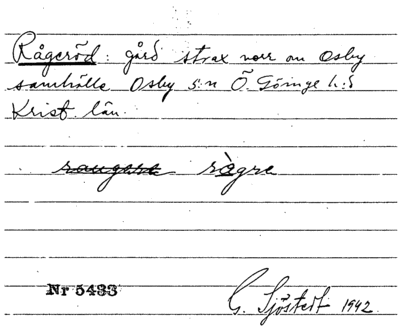 Rågeröd: gård strax norr om Osby
samhälle. Osby s:n Ö. Göinge h:d
Krist. län.
rågre
Nr 5433
G. Sjöstedt 1942.